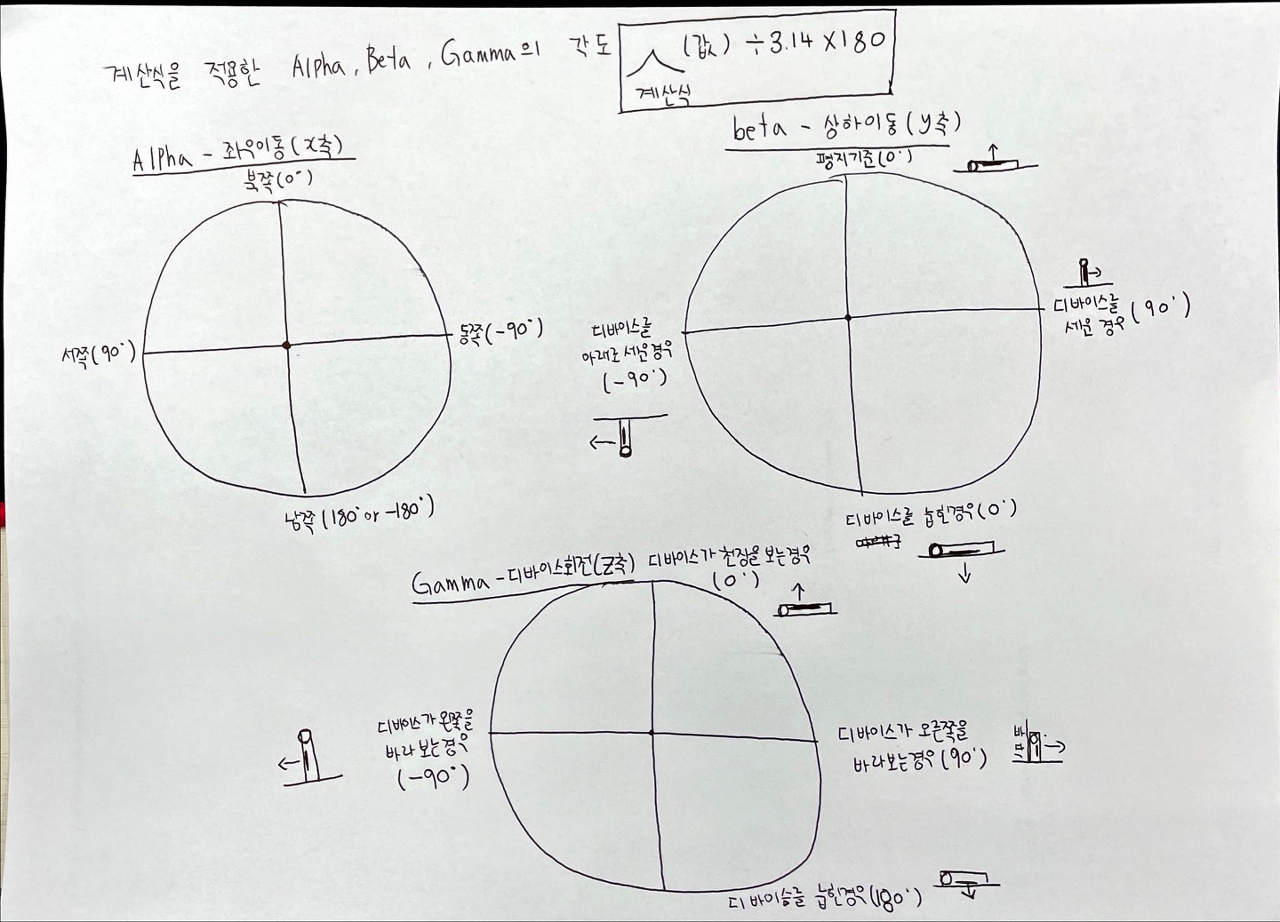 계산식을 적용한 Alpha, Beta, Gamma의 각도
(값) ÷3.14 X180
계산식
Alpha - 좌우이동(x축)
북쪽(0°)
서쪽(90°)
동쪽(-90°)
남쪽(180° or -180°)
beta - 상하이동(y축)
평지기준(0°)
디바이스를
세운 경우 (90°)
디바이스를
아래로 세운경우
(-90°)
디바이스를 눕힌경우(0°)
Gamma - 디바이스회전(Z축)
디바이스가 천장을 보는경우
(0°)
디바이스가 왼쪽을
바라보는경우
(-90°)
디바이스가 오른쪽을
바라보는경우(90°)
바닥
디바이슬를 눕힌경우(180°)